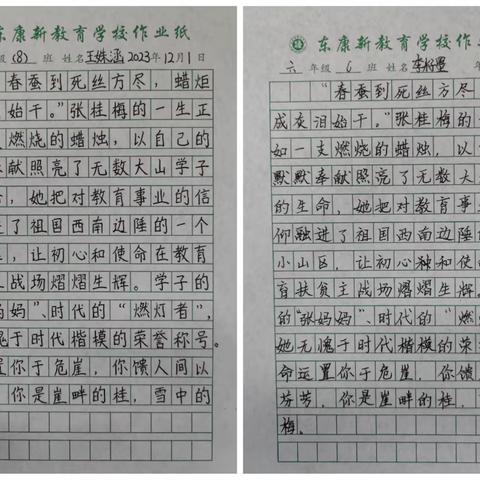 东康新教育学校作业纸
级 (8) 班 姓名 王姝涵 2023年12月1日
春蚕到死丝方尽，蜡炬
始干。”张桂梅的一生正
燃烧的蜡烛，以自己的
献照亮了无数大山学子
，她把对教育事业的信
了祖国西南边陲的一个
，让初心和使命在教育
战场熠熠生辉。学子的
妈妈”、时代的“燃灯者”，
愧于时代楷模的荣誉称号。
置你于危崖，你馈人间以
你是崖畔的桂，雪中的
东康新教育学校作
六 年级 6 班 姓名 李
“春蚕到死丝方尽
成灰泪始干。”张桂梅的
如一支燃烧的蜡烛，以
默默奉献照亮了无数大
的生命，她把对教育事
仰融进了祖国西南边陲
小山区，让初心独和使
育扶贫主战场熠熠生辉。
的“张妈妈”、时代的“燃
她无愧于时代楷模的荣
命运置你于危崖，你馈
芬芳，你是崖畔的桂，
梅。